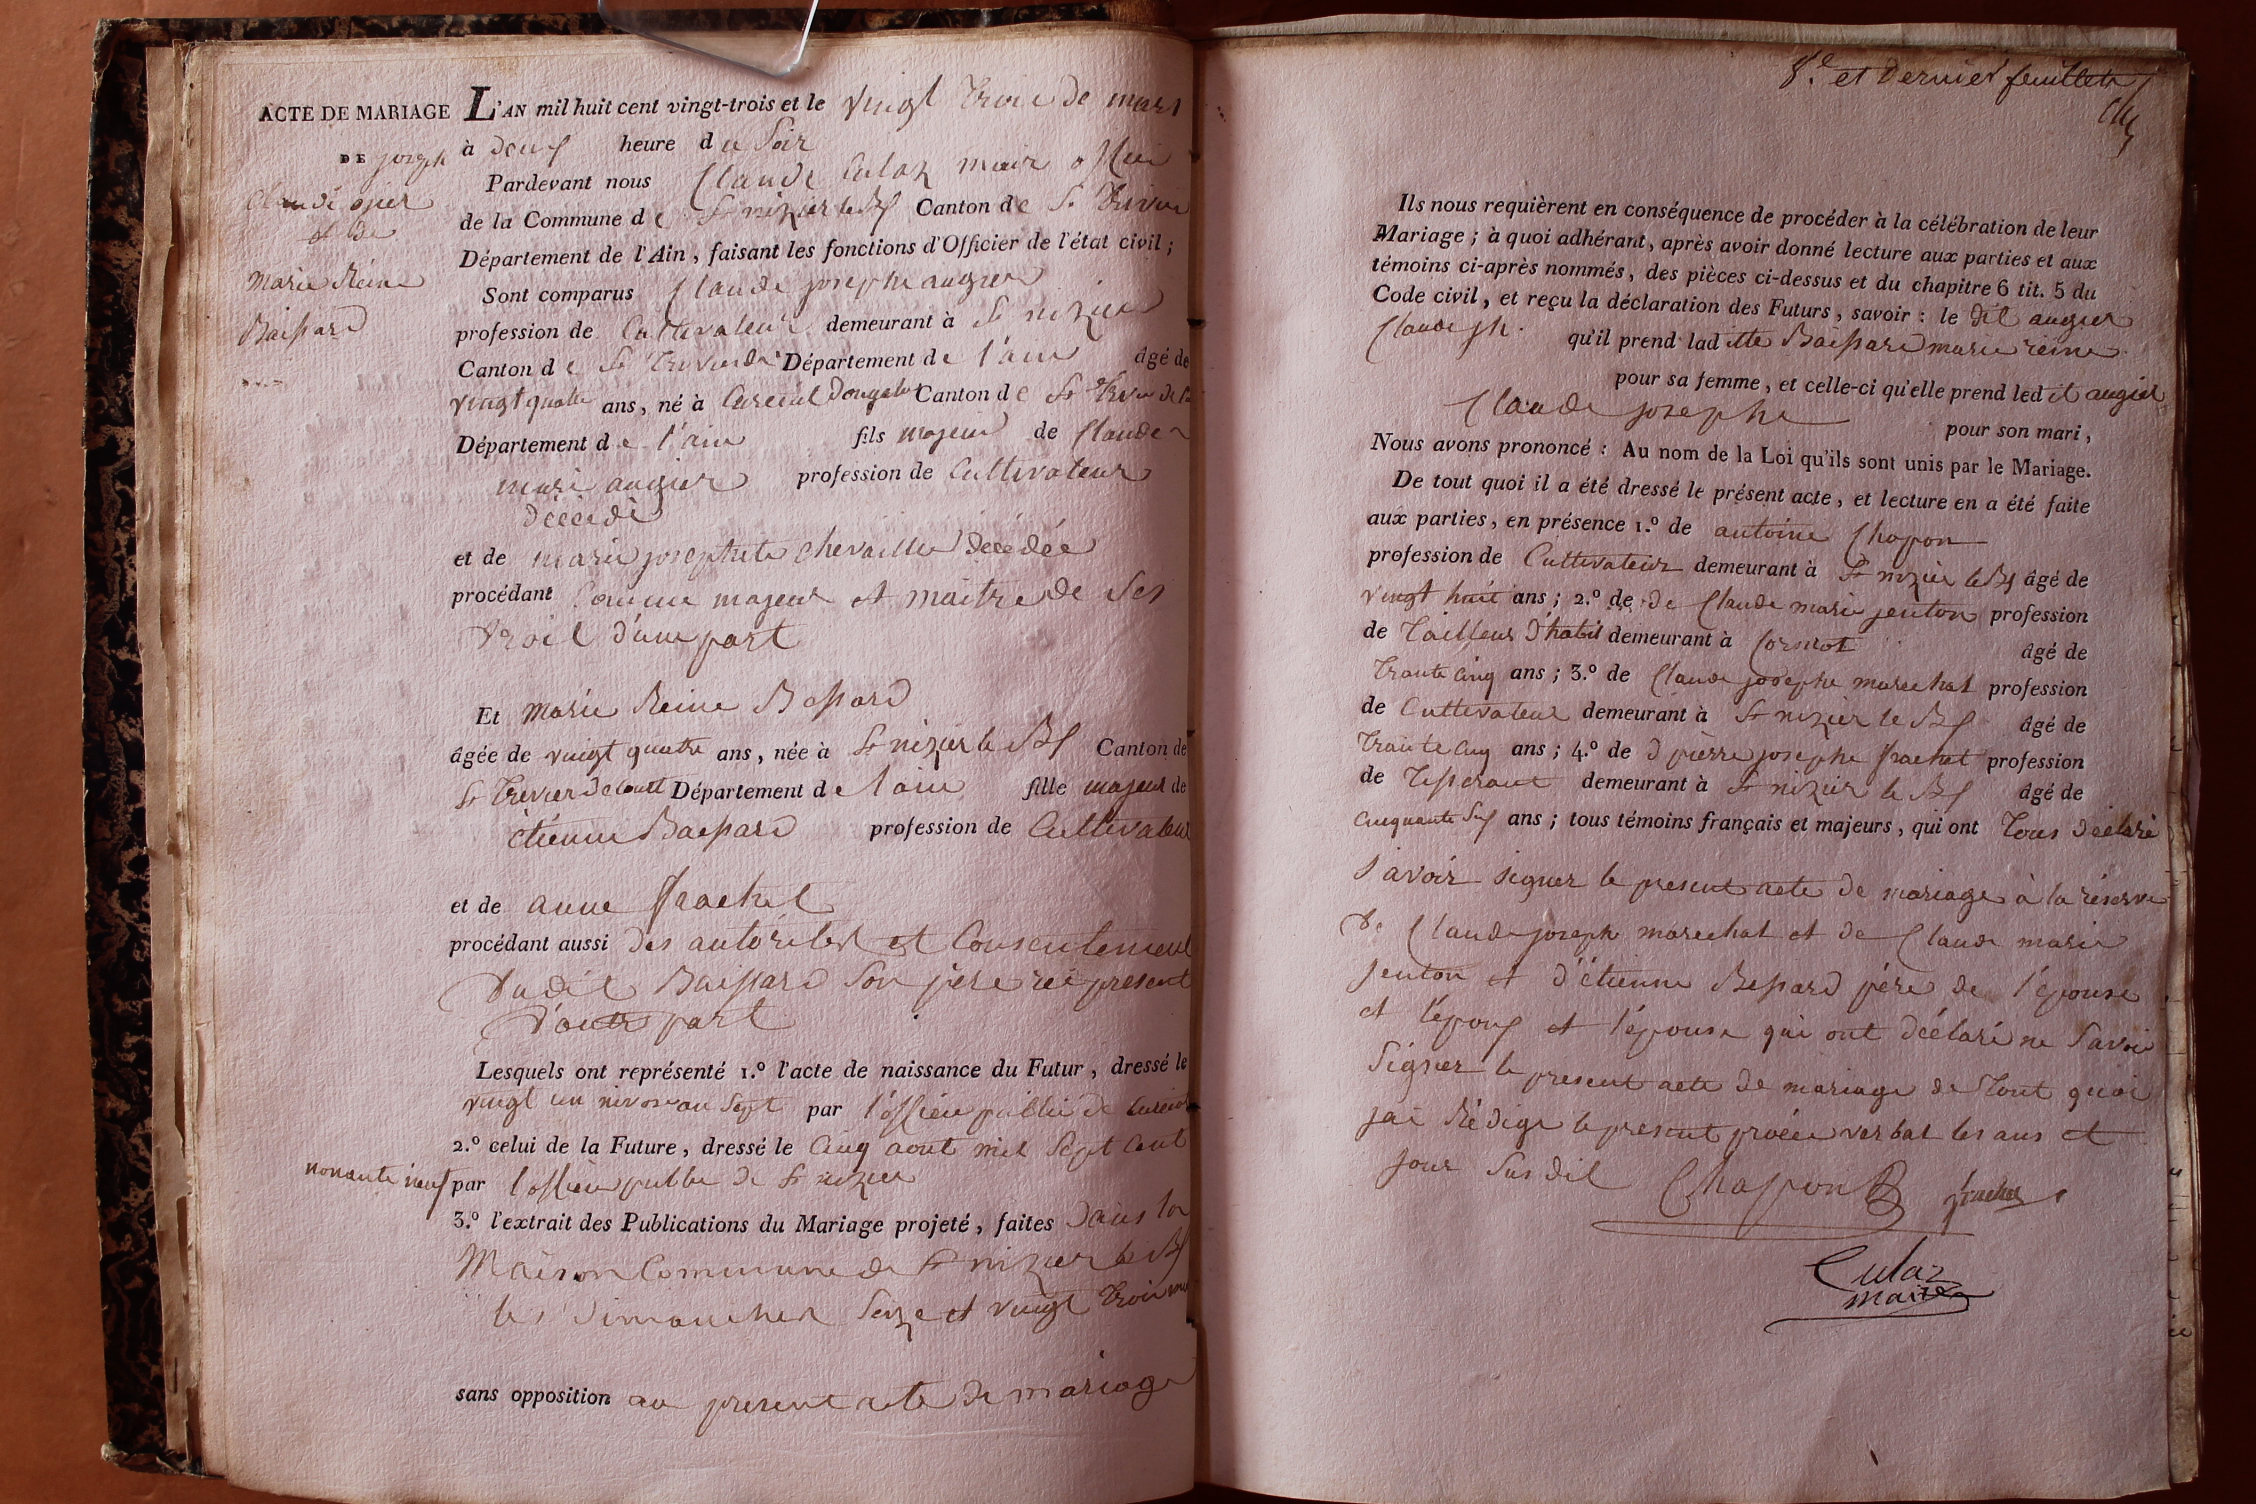 ACTE DE MARIAGE
DE joseph
Claude ojier
et de
Marie Reine
Baissard
L'AN mil huit cent vingt-trois et le vingt trois de mars
à deux heure du Soir
Pardevant nous Claude Culaz mair offici
de la Commune de St nizier le Bx Canton de St Trivier
Département de l'Ain, faisant les fonctions d'Officier de l'état civil;
Sont comparus Claude josephe augier
profession de Cultivateur demeurant à St nizier
Canton de St Trivier de Département de l'ain âgé de
vingt quatre ans, né à Curciat Dongalon Canton de St Trivier de
Département de l'ain fils majeur de Claude
mari augier profession de Cultivateur
décédé
et de marie josephete chevaillier décédée
procédant Comme majeur et maitre de Ses
Droit d'une part
Et Marie Reine Bassard
âgée de vingt quatre ans, née à St nizier le Bx Canton de
St Trivier de Court Département de l'ain fille majeur de
étienne Baissard profession de Cultivateur
et de anne frachet
procédant aussi des autorités et Consentement
Dudit Baissard Son père ici présent
D'autre part
Lesquels ont représenté 1.º l'acte de naissance du Futur, dressé le
vingt un nivose an Sept par l'officier public de Curciat
2.º celui de la Future, dressé le Cinq aout mil Sept Cent
nonante neuf par l'officier public de St nizier
3.º l'extrait des Publications du Mariage projeté, faites Dans la
Maison Commune de St nizier le Bx
les dimanches Seize et vingt trois mars
sans opposition au present acte de mariage
8.e et Dernier feuillet
Ils nous requièrent en conséquence de procéder à la célébration de leur
Mariage; à quoi adhérant, après avoir donné lecture aux parties et aux
témoins ci-après nommés, des pièces ci-dessus et du chapitre 6 tit. 5 du
Code civil, et reçu la déclaration des Futurs, savoir: le dit augier
Claude jh. qu'il prend ladite Baissard marie reine
pour sa femme, et celle-ci qu'elle prend ledit augier
Claude josephe pour son mari,
Nous avons prononcé: Au nom de la Loi qu'ils sont unis par le Mariage.
De tout quoi il a été dressé le présent acte, et lecture en a été faite
aux parties, en présence 1.º de antoine Chapon
profession de Cultivateur demeurant à St nizier le Bx âgé de
vingt huit ans; 2.º de de Claude marie jenton profession
de Tailleur d'habit demeurant à Cormot âgé de
Trante Cinq ans; 3.º de Claude josephe marechal profession
de Cultivateur demeurant à St nizier le Bx âgé de
Trante Cinq ans; 4.º de d pierre josephe frachet profession
de Tisserant demeurant à St nizier le Bx âgé de
Cinquante Six ans; tous témoins français et majeurs, qui ont Tous déclaré
Savoir signer le present acte de mariage à la réserve
De Claude joseph marechal et de Claude marie
jenton et d'étienne Bessard père de l'épouse
et l'époux et l'épouse qui ont déclaré ne Savoir
Signer le present acte de mariage de Tout quoi
jai Rédige le present procée verbal les ans et
jour Sus dit Chapon frachet
Culaz
maire